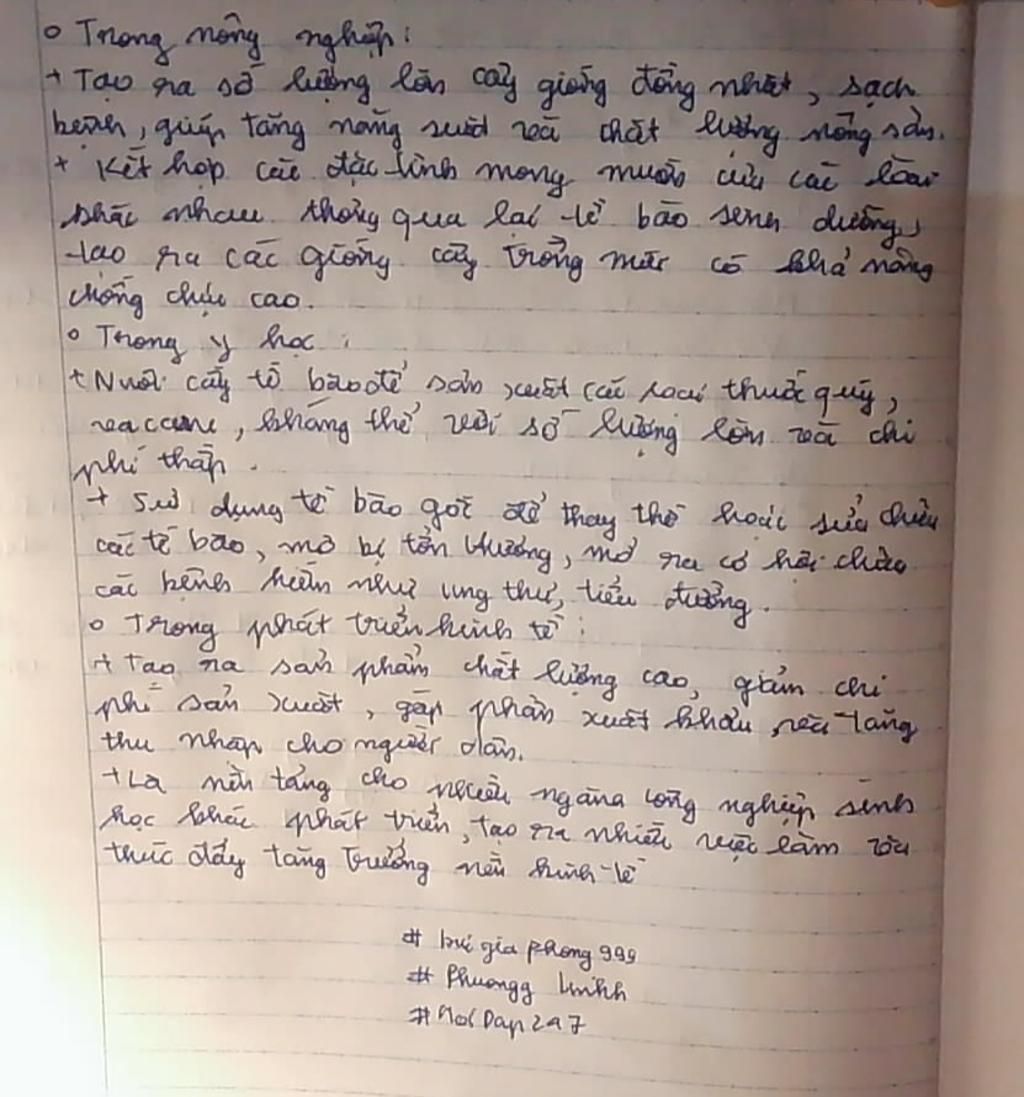 o Trong nông nghiệp:
+ Tạo ra số lượng lớn cây giống đồng nhất, sạch
bệnh, giúp tăng năng suất và chất lượng nông sản.
+ Kết hợp các đặc tính mong muốn của các loài
khác nhau thông qua lai tế bào sinh dưỡng,
tạo ra các giống cây trồng mới có khả năng
chống chịu cao.
o Trong y học:
+ Nuôi cấy tế bào để sản xuất các loại thuốc quý,
vaccine, kháng thể với số lượng lớn và chi
phí thấp.
+ Sử dụng tế bào gốc để thay thế hoặc sửa chữa
các tế bào, mô bị tổn thương, mở ra cơ hội chữa
các bệnh hiểm như ung thư, tiểu đường.
o Trong phát triển kinh tế:
+ Tạo ra sản phẩm chất lượng cao, giảm chi
phí sản xuất, góp phần xuất khẩu và tăng
thu nhập cho người dân.
+ Là nền tảng cho nhiều ngành công nghiệp sinh
học khác phát triển, tạo ra nhiều việc làm và
thúc đẩy tăng trưởng nền kinh tế
# bui gia phong 999
# Phuongg Linhh
# Hoi Dap 247